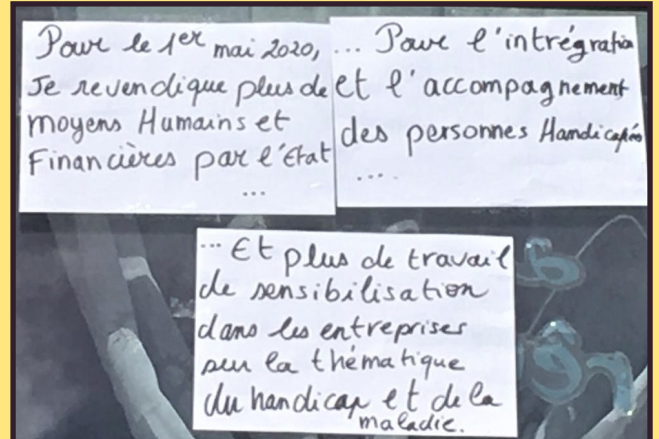 Pour le 1er mai 2020,
Je revendique plus de
moyens Humains et
Financières par l'Etat
...
... Pour l'intrégration
et l'accompagnement
des personnes Handicapées
....
... Et plus de travail
de sensibilisation
dans les entreprises
sur la thématique
du handicap et de la
maladie.